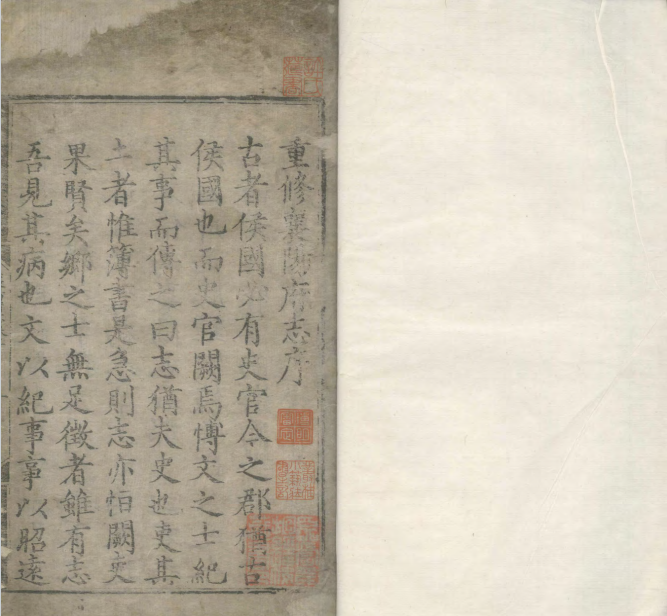 重修襄陽府志序
古者侯國必有史官今之郡猶古
侯國也而史官闕焉博文之士紀
其事而傳之曰志猶夫史也吏其
土者惟簿書是急則志亦怕闕吏
果賢矣鄉之士無足徵者雖有志
吾見其病也文以紀事事以昭遠